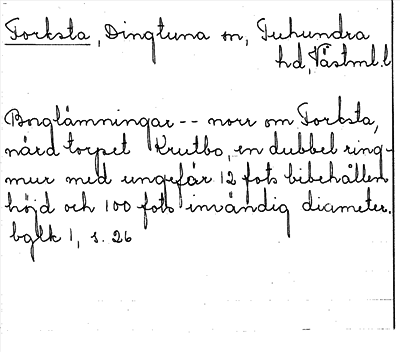 Forksta, Dingtuna sn, Tuhundra
hd, Västml. l
Borglämningar -- norr om Forksta,
nära torpet Krutbo, en dubbel ring-
mur med ungefär 12 fots bibehållen
höjd och 100 fots invändig diameter.
bglk 1, s. 26